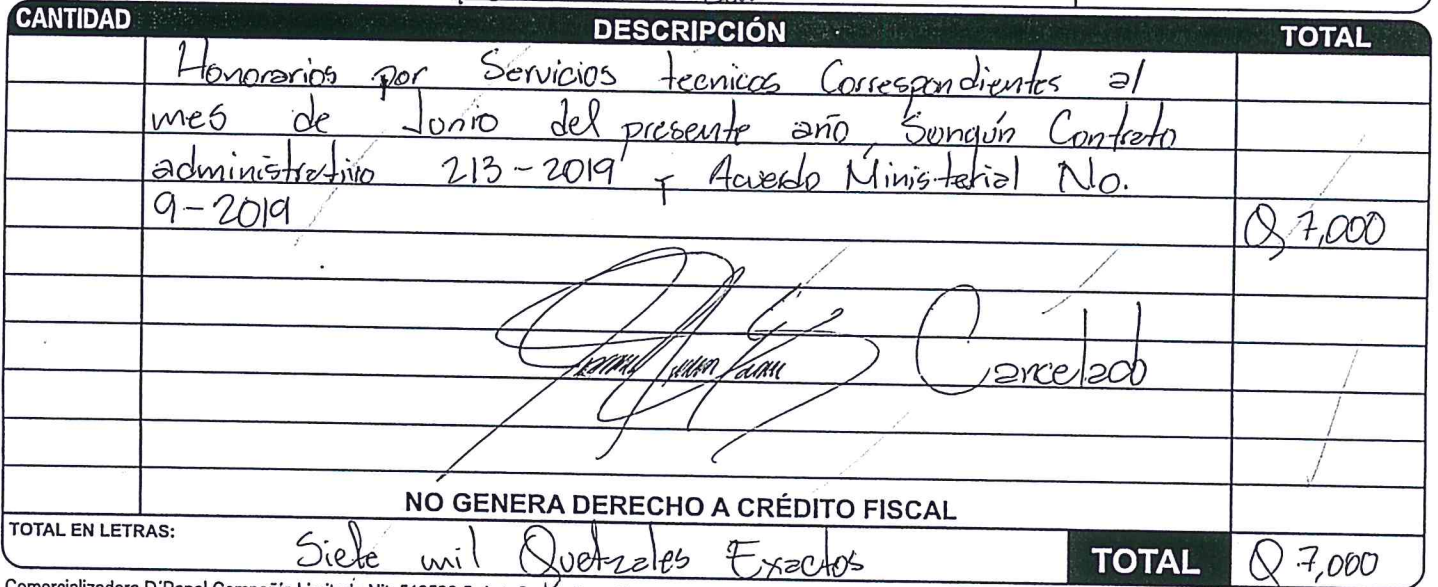 CANTIDAD DESCRIPCIÓN TOTAL
Honorarios por Servicios tecnicos Correspondientes al
mes de Junio del presente año Sungún Contrato
administrativo 213-2019 y Acuerdo Ministerial No.
9-2019 Q 7,000
Cancelado
NO GENERA DERECHO A CRÉDITO FISCAL
TOTAL EN LETRAS: Siete mil Quetzales Exactos TOTAL Q 7,000